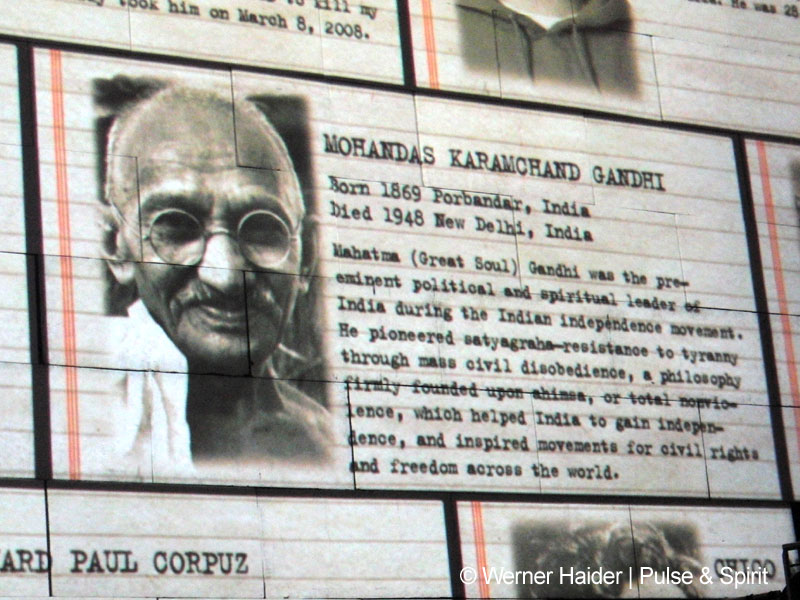 to kill my
took him on March 8, 2008.
He was 28
MOHANDAS KARAMCHAND GANDHI
Born 1869 Porbandar, India
Died 1948 New Delhi, India
Mahatma (Great Soul) Gandhi was the pre-
eminent political and spiritual leader of
India during the Indian independence movement.
He pioneered satyagraha—resistance to tyranny
through mass civil disobedience, a philosophy
firmly founded upon ahimsa, or total nonvio-
lence, which helped India to gain indepen-
dence, and inspired movements for civil rights
and freedom across the world.
ARD PAUL CORPUZ
© Werner Haider | Pulse & Spirit